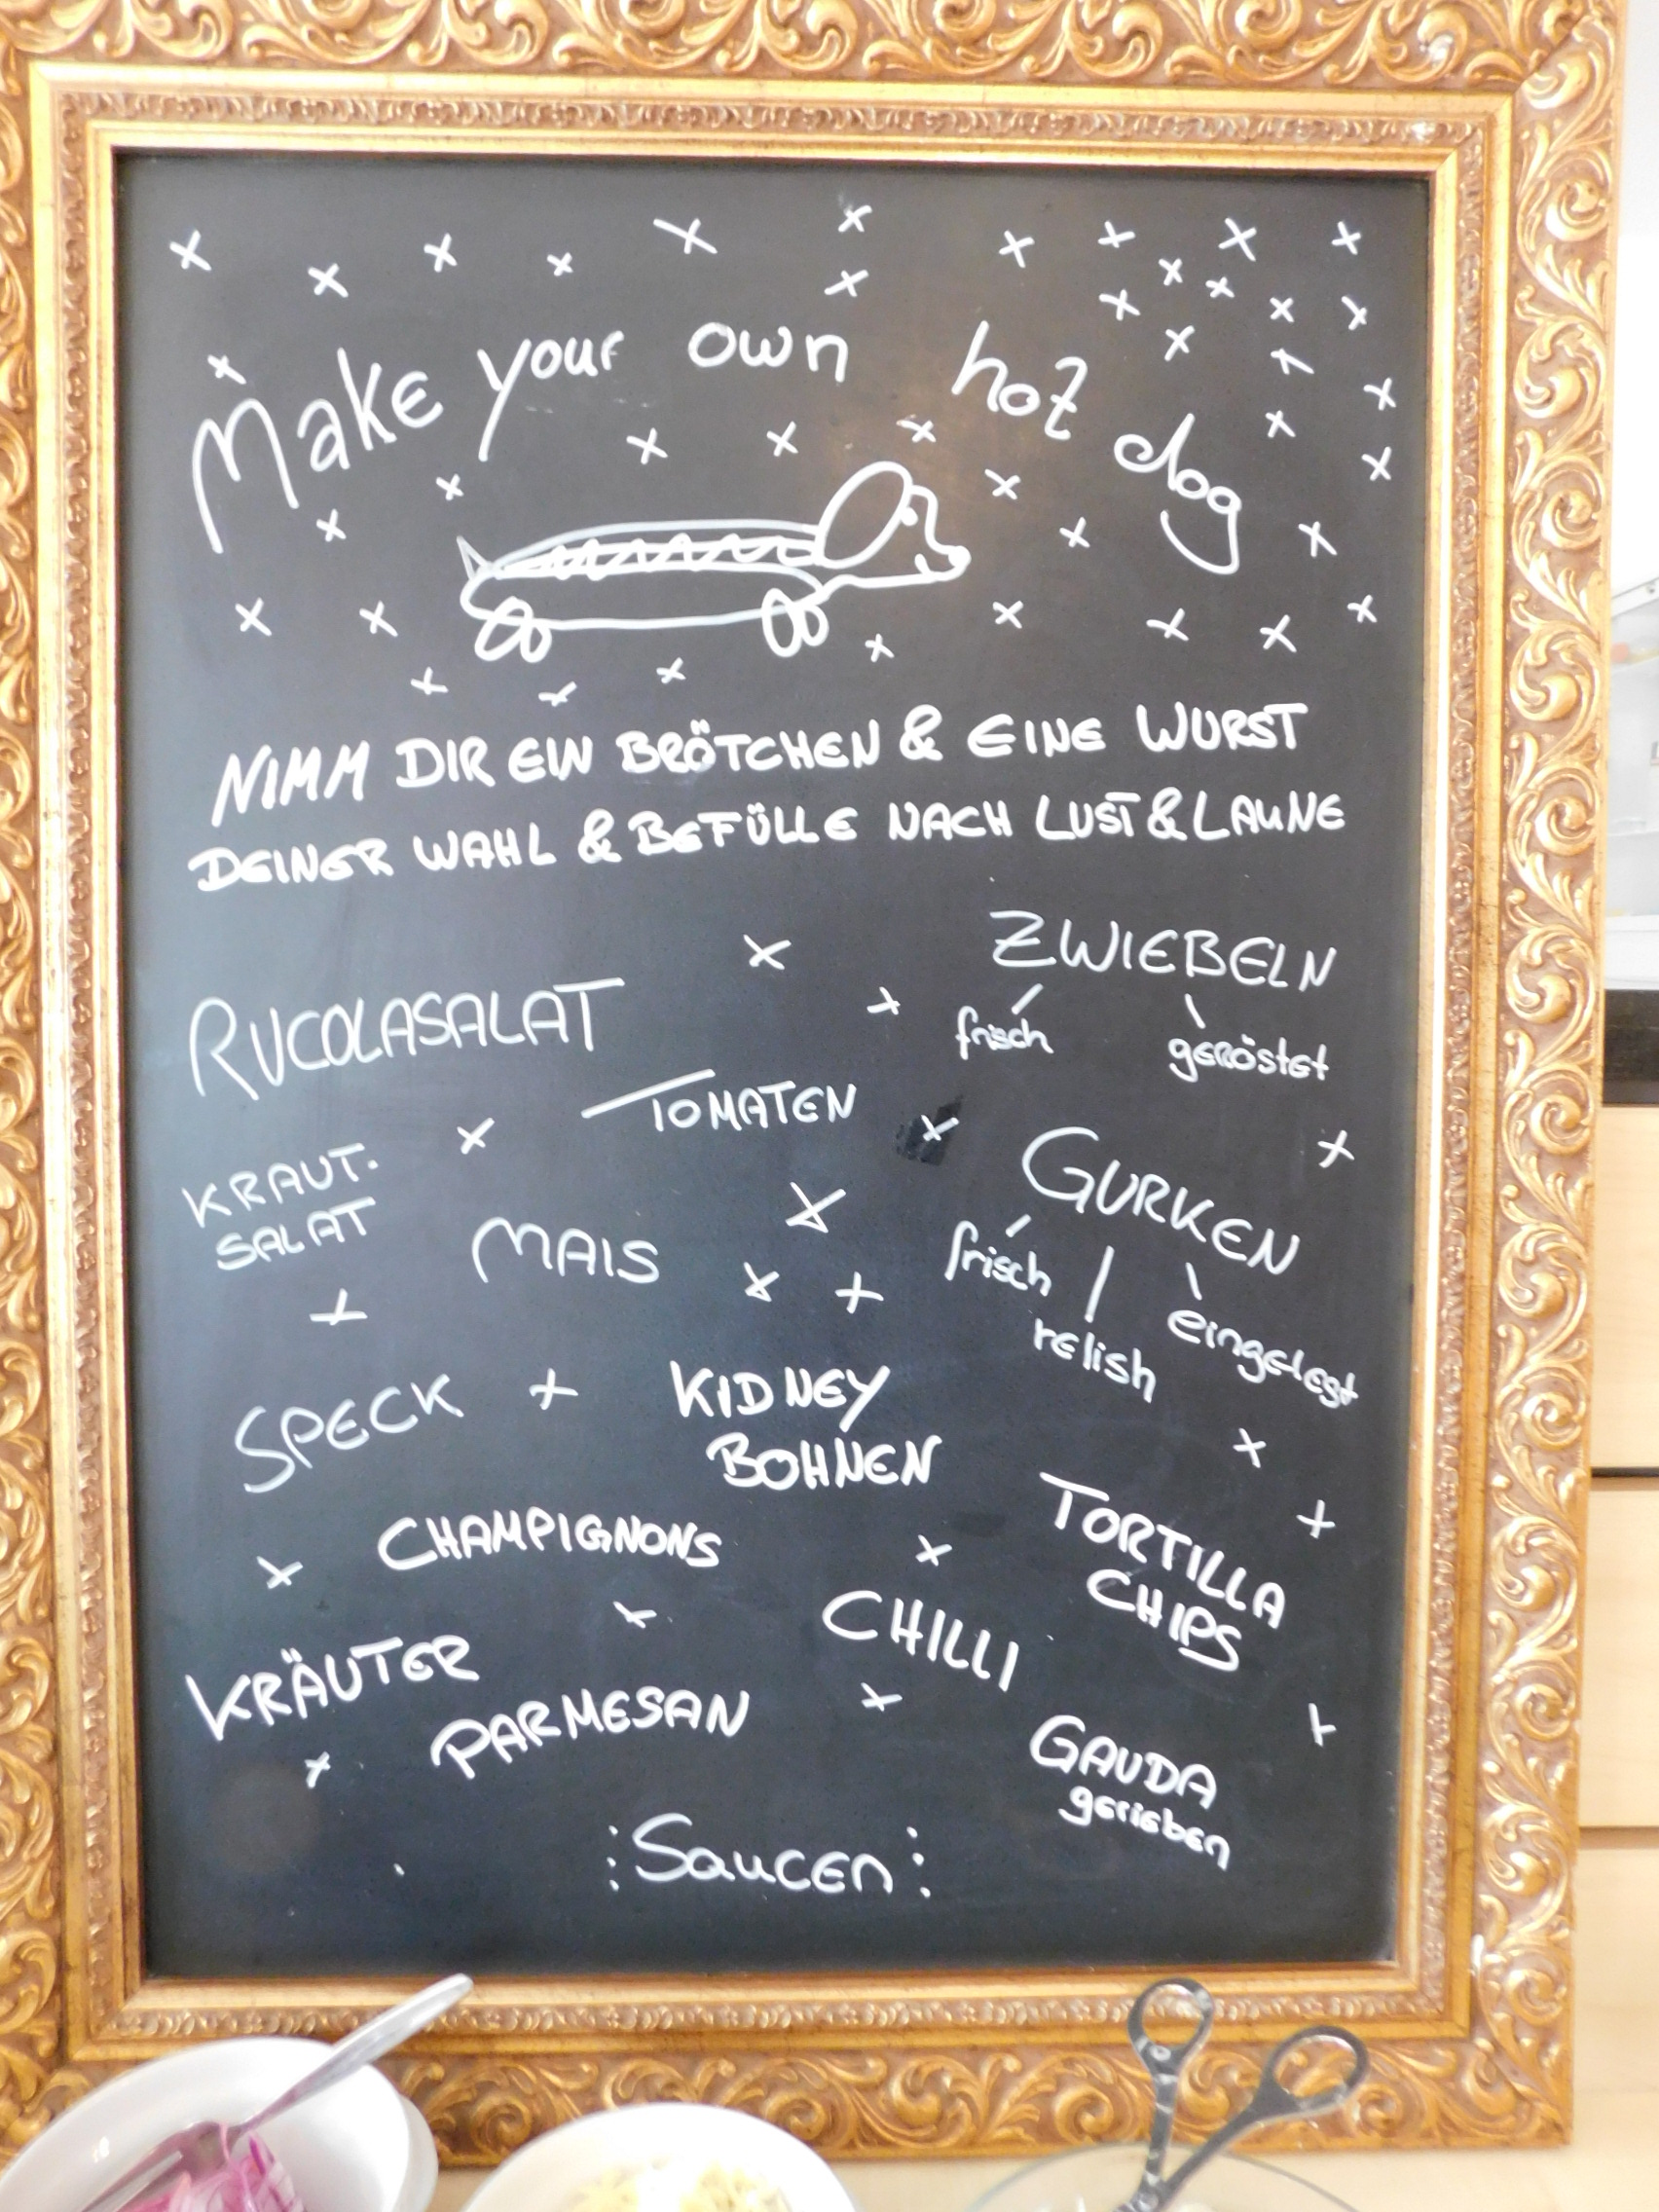 Make your own hot dog
NIMM DIR EIN BRÖTCHEN & EINE WURST
DEINER WAHL & BEFÜLLE NACH LUST & LAUNE
ZWIEBELN
frisch geröstet
RUCOLASALAT
TOMATEN
KRAUT-
SALAT
MAIS
GURKEN
frisch
relish
eingelegt
SPECK
KIDNEY
BOHNEN
CHAMPIGNONS
TORTILLA
CHIPS
CHILLI
KRÄUTER
PARMESAN
GAUDA
gerieben
:Saucen: